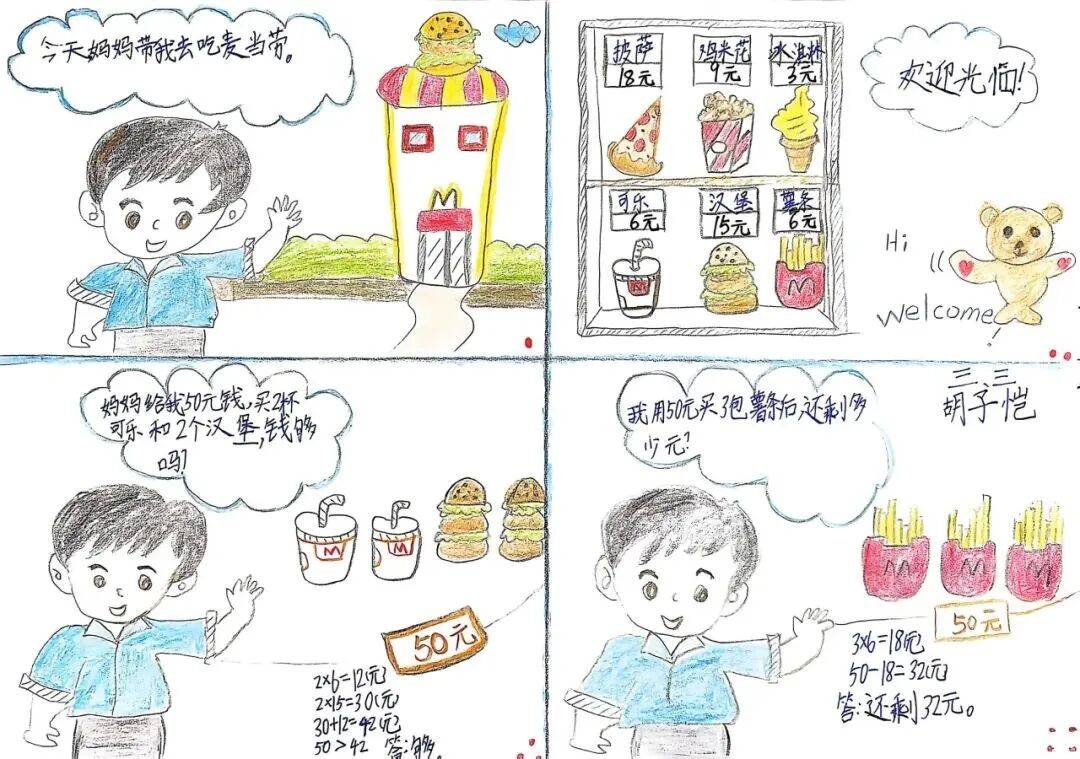 今天妈妈带我去吃麦当劳。
M
披萨 鸡米花 冰淇淋
18元 9元 3元
可乐 汉堡 薯条
6元 15元 6元
M
M
欢迎光临!
Hi
Welcome!
妈妈给我50元钱,买2杯
可乐和2个汉堡,钱够
吗?
M
M
50元
2×6=12(元)
2×15=30(元)
30+12=42(元)
50>42 答:够。
三三
胡子恺
我用50元买了3包薯条后,还剩多
少元?
M M M
50元
3×6=18(元)
50-18=32(元)
答:还剩32元。